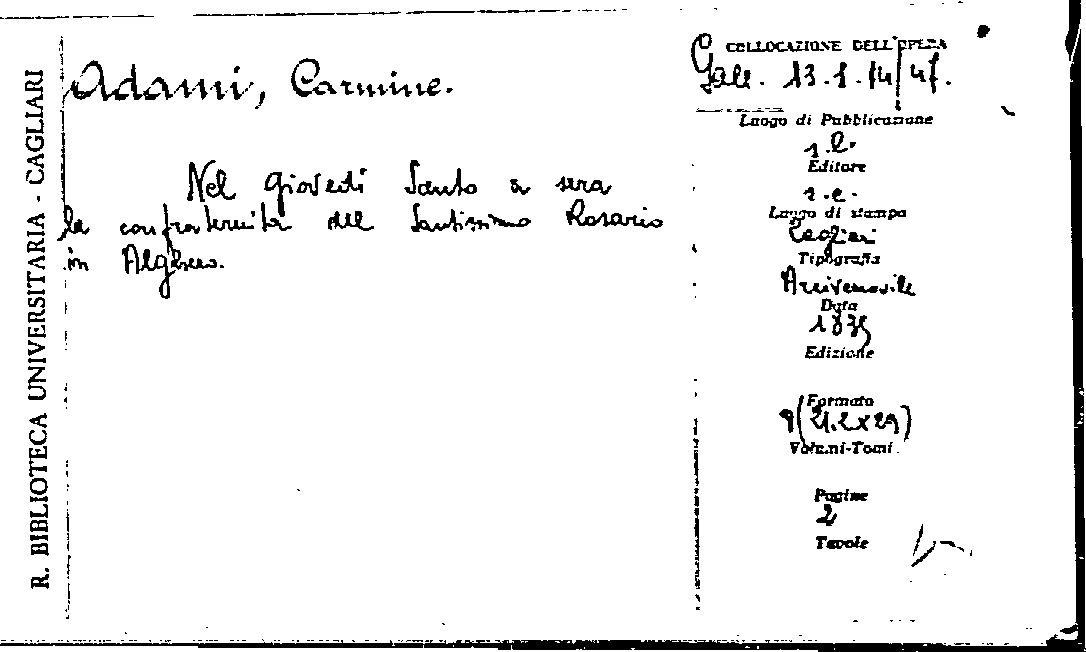 R. BIBLIOTECA UNIVERSITARIA - CAGLIARI
Adami, Carmine.
Nel giovedì Santo a sera
la confraternita del Santissimo Rosario
in Alghero.
COLLOCAZIONE DELL'OPERA
Gall. 13.1.14/47.
Luogo di Pubblicazione
s.l.
Editore
s.e.
Luogo di stampa
Cagliari
Tipografia
Arcivescovile
Data
Edizione
Formato
(21.2x29)
Volumi-Tomi
Pagine
2
Tavole